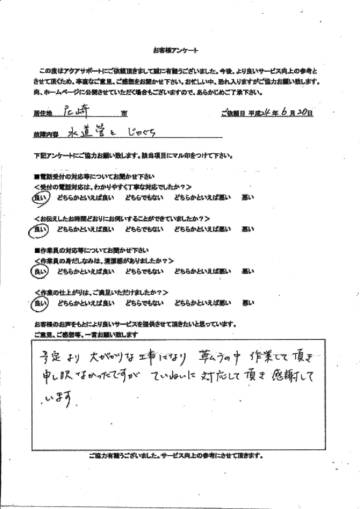 お客様アンケート
この度はアクアサポートにご依頼頂きまして誠に有難うございました。今後、より良いサービス向上の参考と
させて頂くため、率直なご意見、ご感想をお聞かせ下さい。お忙しい中、恐れ入りますがご協力お願い致します。
尚、ホームページに公開させていただく場合もございますので、あらかじめご了承下さい。
居住地 尼崎 市 ご依頼日 平成24年6月20日
故障内容 水道管と じゃぐち
下記アンケートにご協力お願い致します。該当項目にマル印をつけて下さい。
■電話受付の対応等についてお聞かせ下さい
<受付の電話対応は、わかりやすく丁寧な対応でしたか?>
良い どちらかといえば良い どちらでもない どちらかといえば悪い 悪い
<お伝えしたお時間どおりにお伺いすることができていましたか?>
良い どちらかといえば良い どちらでもない どちらかといえば悪い 悪い
■作業員の対応等についてお聞かせ下さい
<作業員の身だしなみは、清潔感がありましたか?>
良い どちらかといえば良い どちらでもない どちらかといえば悪い 悪い
<作業の仕上がりは、ご満足いただけましたか?>
良い どちらかといえば良い どちらでもない どちらかといえば悪い 悪い
お客様のお声をもとにより良いサービスを提供させて頂きたいと思っています。
ご意見、ご感想等、一言お願い致します
予定より 大がかりな工事になり 草むらの中 作業して頂き
申し訳なかったですが ていねいに 対応して頂き 感謝して
います
ご協力有難うございました。サービス向上の参考にさせて頂きます。